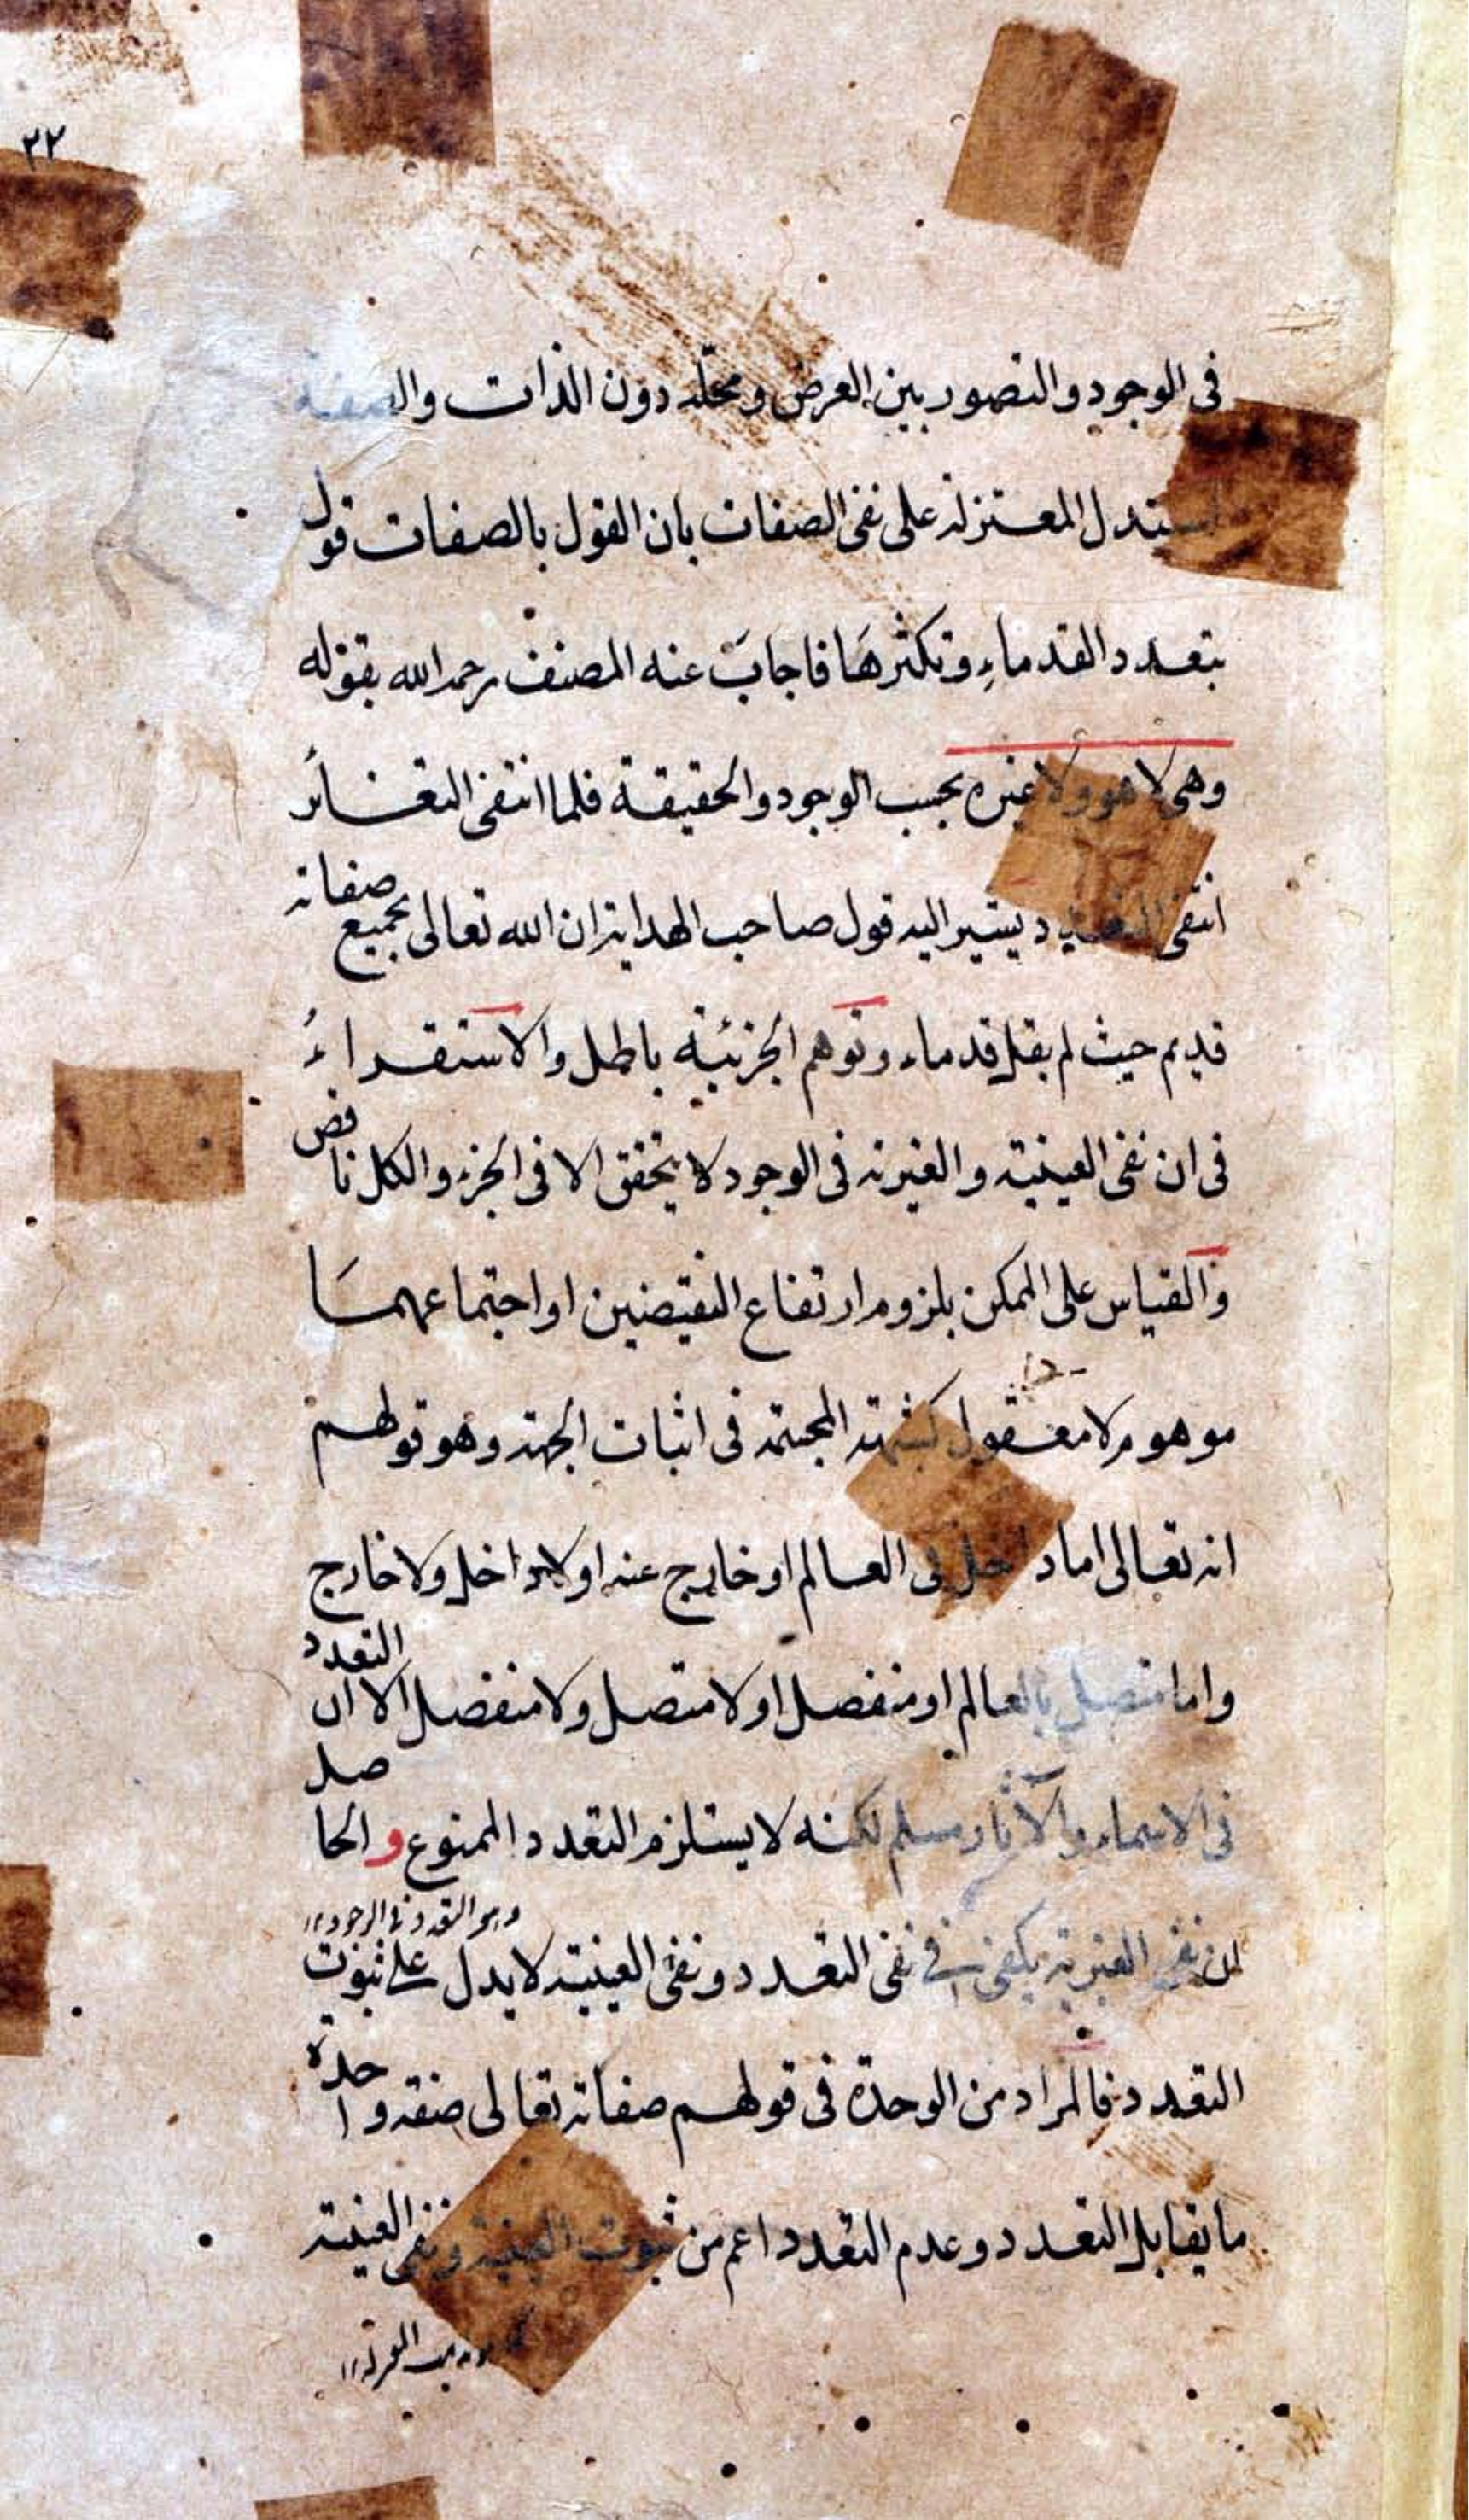 ٢٢
في الوجود والتصور بين العرض ومحله دون الذات والصفة
استدل المعتزلة على نفى الصفات بان القول بالصفات قول
بتعدد القدماء وتكثرها فاجاب عنه المصنف رحمه الله بقوله
وهى لا هو ولا غيره بحسب الوجود والحقيقة فلما انتفى التغائر
انتفى التعدد يشير اليه قول صاحب الهداية ان الله تعالى بجميع صفاته
قديم حيث لم يقل قدماء وتوهم الجزئية باطل والاستقراء
فى ان نفى العينية والغيرية فى الوجود لا يتحقق الا فى الجزء والكل ناقص
والقياس على الممكن بلزوم ارتفاع النقيضين او اجتماعهما
موهوم لا معقول كشبهة المجسمة فى اثبات الجهة وهو قولهم
انه تعالى اما داخل فى العالم او خارج عنه او لا داخل ولا خارج
واما متصل بالعالم او منفصل او لا متصل ولا منفصل الا ان التعدد
فى الاسماء والآثار مسلم لكنه لا يستلزم التعدد الممنوع و الحاصل
ان نفى الغيرية يكفى فى نفى التعدد ونفى العينية لا يدل على ثبوت
وهو التعدد فى الوجود ١٢
التعدد فالمراد من الوحدة فى قولهم صفاته تعالى صفة واحدة
ما يقابل التعدد وعدم التعدد اعم من ثبوت العينية ونفى العينية